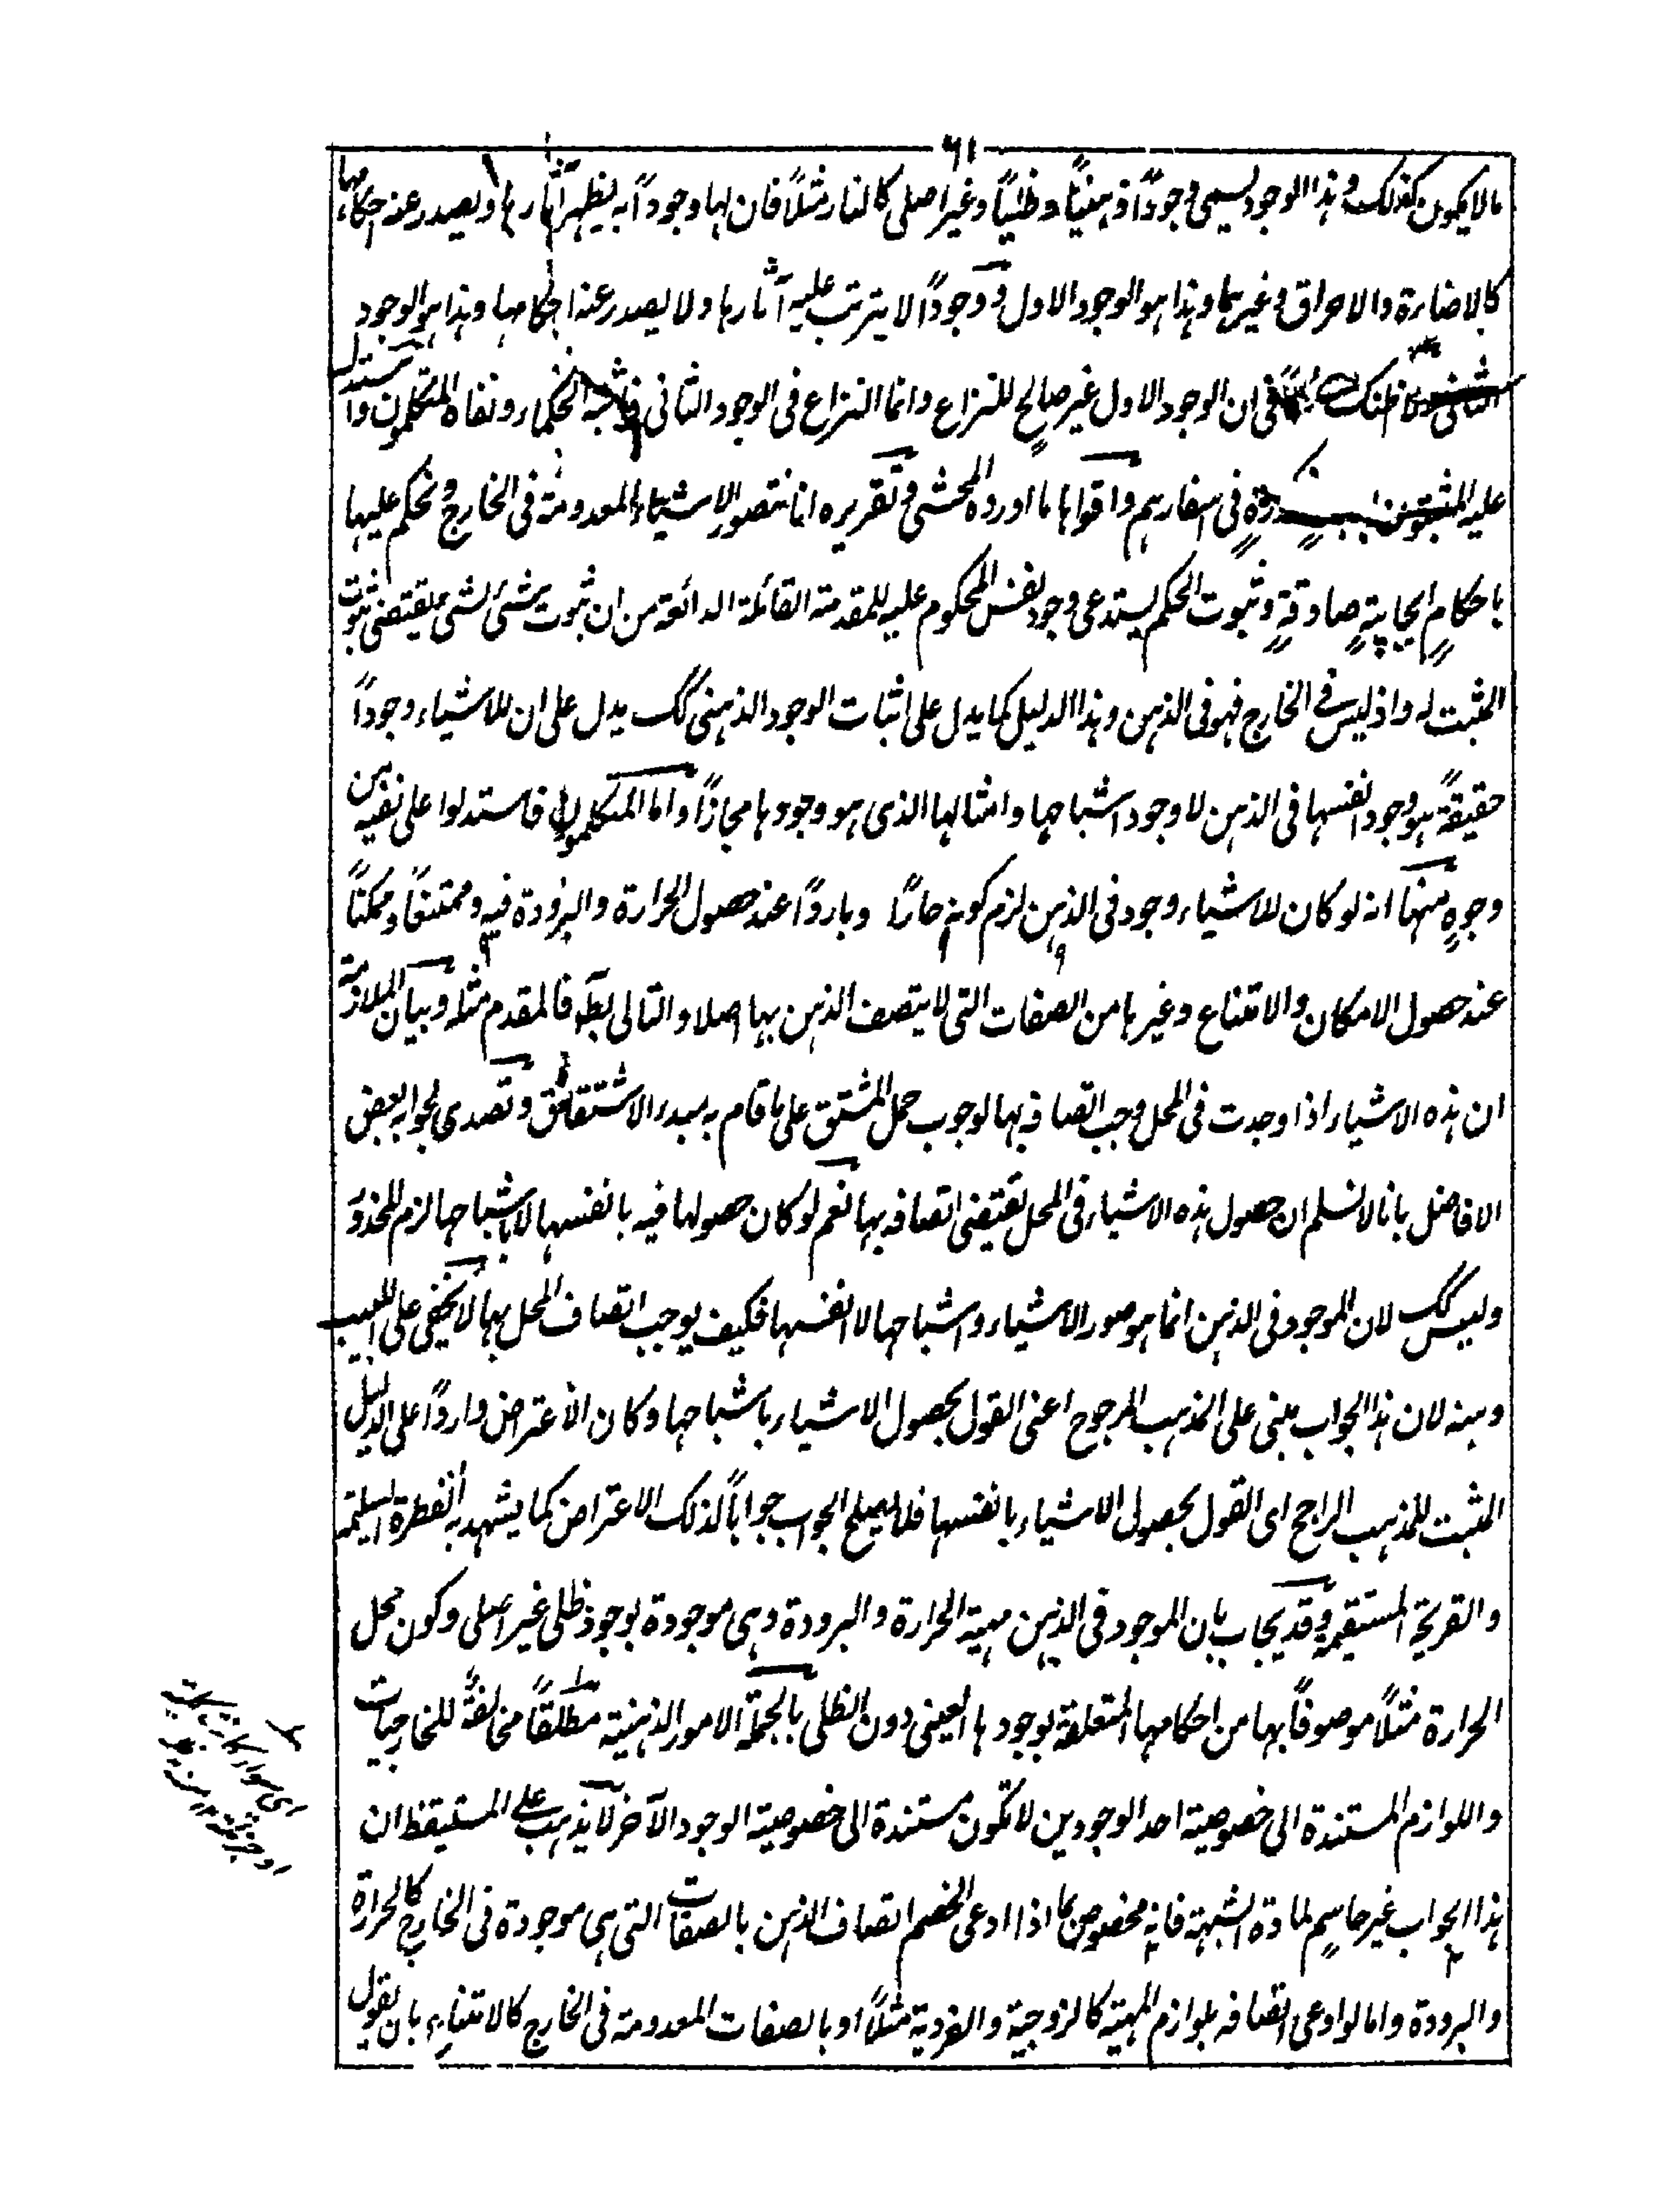 ٦١
ما لا يكون كذلك وهذا الوجود يسمى وجوداً ذهنياً وظلياً وغير اصلى كالنار مثلاً فان لها وجوداً به يظهر آثارها ويصدر عنه احكامها
كالاضاءة والاحراق وغيرهما وهذا هو الوجود الاول ووجوداً لا يترتب عليه آثارها ولا يصدر عنه احكامها وهذا هو الوجود
الثانى فى ان الوجود الاول غير صالح للنزاع وانما النزاع فى الوجود الثانى فاثبته الحكماء ونفاه المتكلمون واستدل
عليه المثبتون فى اسفارهم واقواها ما اورده المحشى وتقريره انا نتصور الاشياء المعدومة فى الخارج ونحكم عليها
باحكامٍ ايجابيةٍ صادقةٍ وثبوت الحكم يستدعى وجود نفس المحكوم عليه للمقدمة القائلة الدائعة من ان ثبوت شئ لشئ يقتضى ثبوت
المثبت له واذ ليس فى الخارج فهو فى الذهن وهذا الدليل كما يدل على اثبات الوجود الذهنى كك يدل على ان للاشياء وجوداً
حقيقةً هو وجود انفسها فى الذهن لا وجود اشباحها وامثالها الذى هو وجودها مجازاً واما المتكلمون فاستدلوا على نفيه من
وجوهٍ منها انه لو كان للاشياء وجود فى الذهن لزم كونه حاراً وبارداً عند حصول الحرارة والبرودة فيه وممتنعاً وممكناً
عند حصول الامكان والامتناع وغيرها من الصفات التى لا يتصف الذهن بها اصلا والتالى بط فالمقدم مثله وبيان الملازمة
ان هذه الاشياء اذا وجدت فى المحل وجب اتصافه بها لوجوب حمل المشتق على ما قام به مبدء الاشتقاق وتصدى لجوابه بعض
الافاضل بانا لا نسلم ان حصول هذه الاشياء فى المحل تقتضى اتصافه بها نعم لو كان حصولها فيه بانفسها لا باشباحها لزم المحذور
وليس كك لان الموجود فى الذهن انما هو صور الاشياء واشباحها لا انفسها فكيف يوجب اتصاف المحل بها لا يخفى على اللبيب
وهنه لان هذا الجواب مبنى على المذهب المرجوح اعنى القول بحصول الاشياء باشباحها وكان الاعتراض وارداً على الدليل
المثبت للمذهب الراجح اى القول بحصول الاشياء بانفسها فلا يصلح الجواب جواباً لذلك الاعتراض كما يشهد به الفطرة السليمة
والقريحة المستقيمة وقد يجاب بان الموجود فى الذهن مهية الحرارة والبرودة وهى موجودة بوجود ظلى غير اصلى وكون محل
الحرارة مثلاً موصوفاً بها من احكامها المتعلقة بوجودها العينى دون الظلى بالجملة الامور الذهنية مطلقاً مخالفةٌ للخارجيات
واللوازم المستندة الى خصوصية احد الوجودين لا تكون مستندة الى خصوصية الوجود الآخر لا يذهب على المستيقظ ان
هذا الجواب غير حاسمٍ لمادة الشبهة فانه مخصوص بما اذا ادعى الخصم اتصاف الذهن بالصفات التى هى موجودة فى الخارج كالحرارة
والبرودة واما لو ادعى اتصافه بلوازم المهية كالزوجية والفردية مثلاً او بالصفات المعدومة فى الخارج كالامتناع بان يقول
اى سواء كان